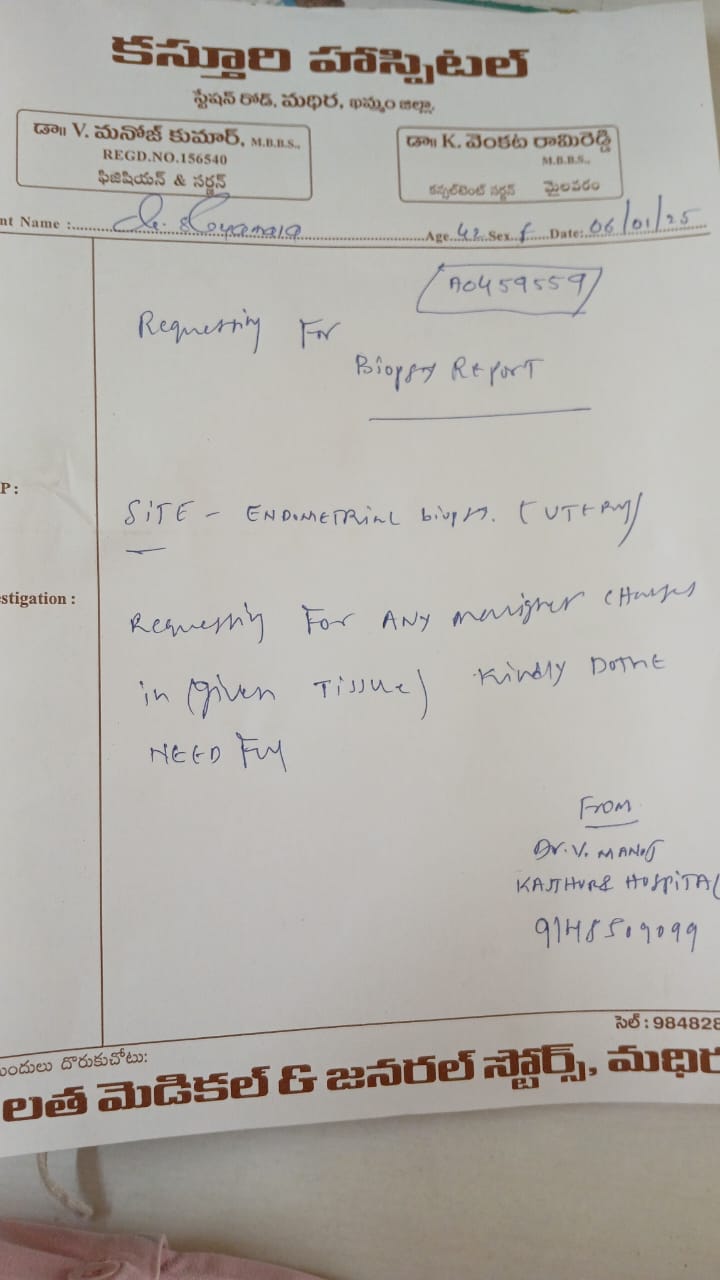 కస్తూరి హాస్పిటల్
స్టేషన్ రోడ్, మధిర, ఖమ్మం జిల్లా.
డా॥ V. మనోజ్ కుమార్, M.B.B.S.,
REGD.NO.156540
ఫిజిషియన్ & సర్జన్
డా॥ K. వెంకట రామిరెడ్డి
M.B.B.S.,
కన్సల్టెంట్ సర్జన్ మైలవరం
nt Name : Ch. Age 42 Sex f Date: 06/01/25
A0459559
Requesting For
Biopsy REPORT
P:
SITE - ENDOMETRIAL biopsy. (UTERUS)
stigation :
Requesting For ANY CHANGES
in (given TISSUE) Kindly DOTHE
NEED FUL
From
Dr. V. MANOJ
KASTHURI HOSPITAL
9148509099
సెల్ : 984828
ందులు దొరుకుచోటు:
లత మెడికల్ & జనరల్ స్టోర్స్, మధిర